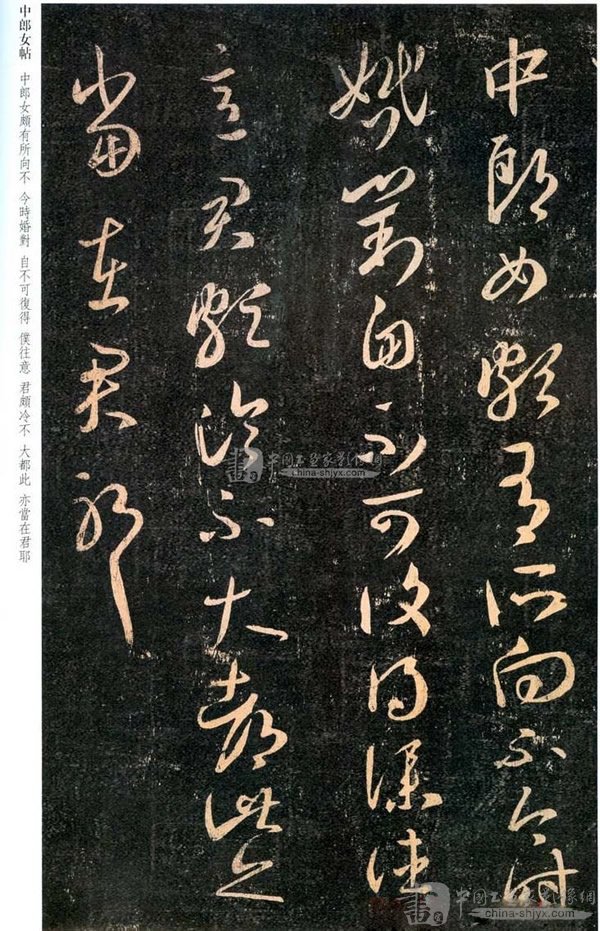 中郎女頗有所向不今時
婚對自不可復得僕往
意君頗冷不大都此亦
當在君耶
中郎女帖 中郎女頗有所向不 今時婚對 自不可復得 僕往意 君頗冷不 大都此 亦當在君耶
中国书画家影像網
china-shjyx.com
中国书画家影像網
china-shjyx.com